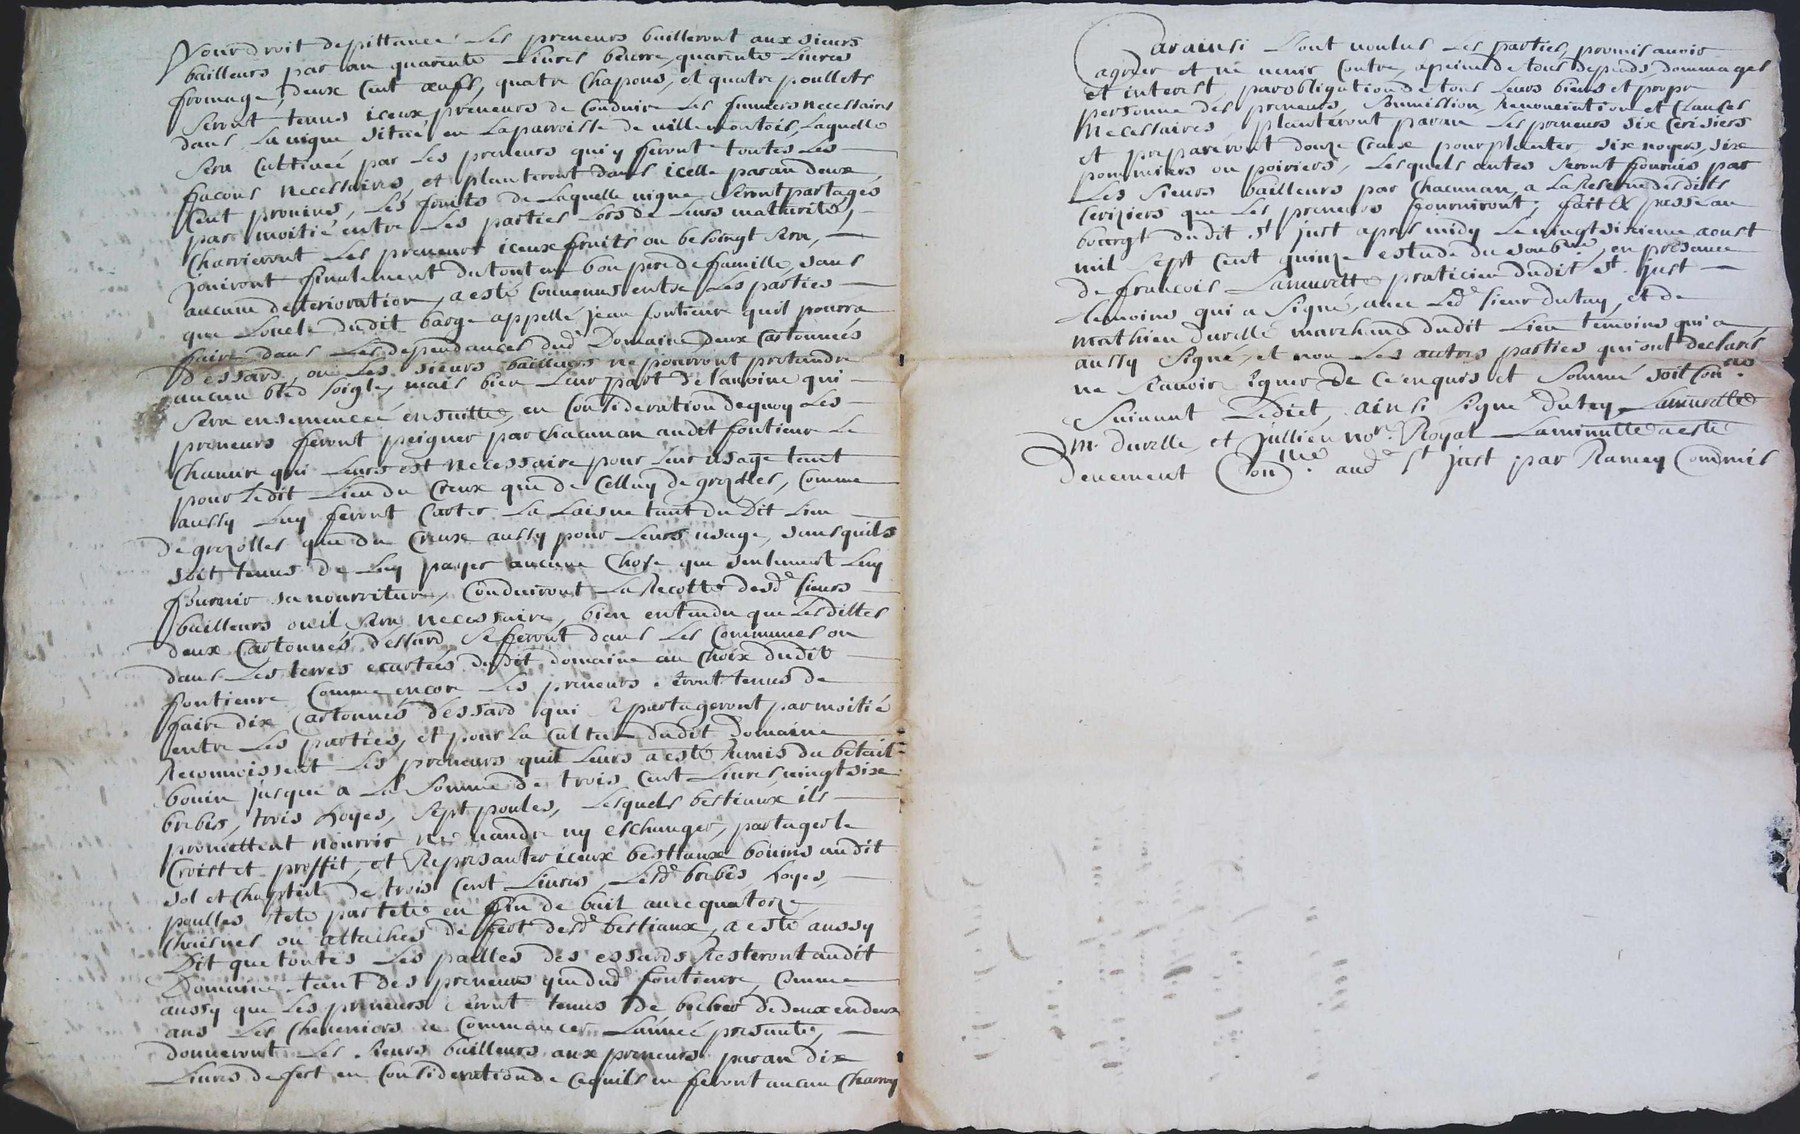 Pour droit de pittance les preneurs bailleront aux sieurs
bailleurs par an quarente livres beurre, quarente livres
fromage, deux cent œufs, quatre chapons, et quatre poullets
seront tenus iceux preneurs de conduire les fumiers necessaires
dans la vigne située en la parroisse de villemontois, laquelle
sera cultivée par les preneurs qui y feront toutes les
façons necessaires, et planteront dans icelle par an deux
cent provins, les fruits de laquelle vigne seront partagés
par moitié entre les parties lors de leurs maturité,
charrieront les preneurs iceux fruits ou besoingt sera,
jouiront finalement du tout en bon pere de famille, sans
aucune deterioration, a esté convenus entre les parties
que l'oncle dudit barge appellé jean fontieure quil pourra
faire dans les dependances dud domaine deux cartonnés
d'essard, ou les sieurs bailleurs ne pourront pretandre
aucun bled soigle, mais bien leur part de l'avoine qui
sera ensemencée ensuitte, en consideration de quoy les
preneurs feront peigner par chacun an audit fontieure le
chanvre qui leurs est necessaire pour leur usage tant
pour ledit lieu du Creux que de celluy de grezolles, comme
aussy luy feront carter la laisne tant du dit lieu
de grezolles que du Creux aussy pour leurs usage, sans quils
soit tenus de luy payer aucune chose que seulement luy
fournir sa nourriture, conduiront la recolte desd sieurs
bailleurs ou il sera necessaire, bien entendu que lesdittes
deux cartonnés d'essard se feront dans les communes ou
dans les terres ecartées dudit domaine au choix dudit
fontieure comme encore les preneurs seront tenus de
faire dix cartonnés d'essard qui se partageront par moitié
entre les parties, et pour la culture dudit domaine
reconnoissent les preneurs quil leurs a esté remis du betail
bovin jusque a la somme de trois cent livres, vingt six
brebis, trois hoyes, sept poules, lesquels bestiaux ils
promettent nourrir ne vandre ny eschanger, partager le
croist et proffit, et represanter iceux bestiaux bovins audit
sol et cheptail de trois cent livres, lesd brebis, hoyes,
poulles tete par tete en fin de bail avec quatorze
chaisnes ou attaches de fert desd bestiaux, a esté aussy
dit que toutes les pailles des essards resteront audit
domaine tant des preneurs que dud fontieure, comme
aussy que les preneurs seront tenus de becher de deux en deux
ans les cheneviers a commancer l'année presante,
donneront les sieurs bailleurs aux preneurs par an dix
livres de fert en consideration de ce quils en feront aucun
Car ainsi l'ont voulus les parties, promis avoir
agreer et ne venir contre, a peine de tous depends, dommages
et interest, par obligation de tous leurs biens et propre
personne des preneurs, soumission, renonciation et clauses
necessaires, planteront par an les preneurs six cerisiers
et prepareront douze creux pour planter six noyers, six
pommiers ou poiriers, lesquels antes seront fournis par
les sieurs bailleurs par chacun an, a la reserve desdits
cerisiers que les preneurs fourniront; fait et passé au
bourgt dudit st just apres midy le vingt sixieme aoust
mil sept cent quinze estude du soubne, en presance
de francois Lamurette praticien dudit st just
temoins qui a signé, avec led sieur dutey, et de
mathieu durelle marchand dudit lieu temoins qui a
aussy signé, et non les autres parties qui ont declaré
ne scavoir signer de ce enquis et sommé soit conne
suivant l'edict, ainsi signé dutey Lamurette
m. durelle, et Jullien nore Royal La minutte a esté
deuement conne. aud st just par Ramey commis